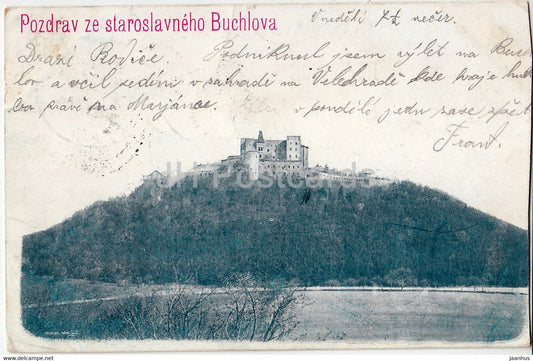 Pozdrav ze staroslavného Buchlova
V neděli 7½ večer.
Drazí Rodiče! Podniknul jsem výlet na Buch
lov a včil sedím v zahradě na Velehradě kde hraje hud
ba právě na Marjánce. v pondělí jedu zase zpět
Frant.
JH Postcards
jaanhus